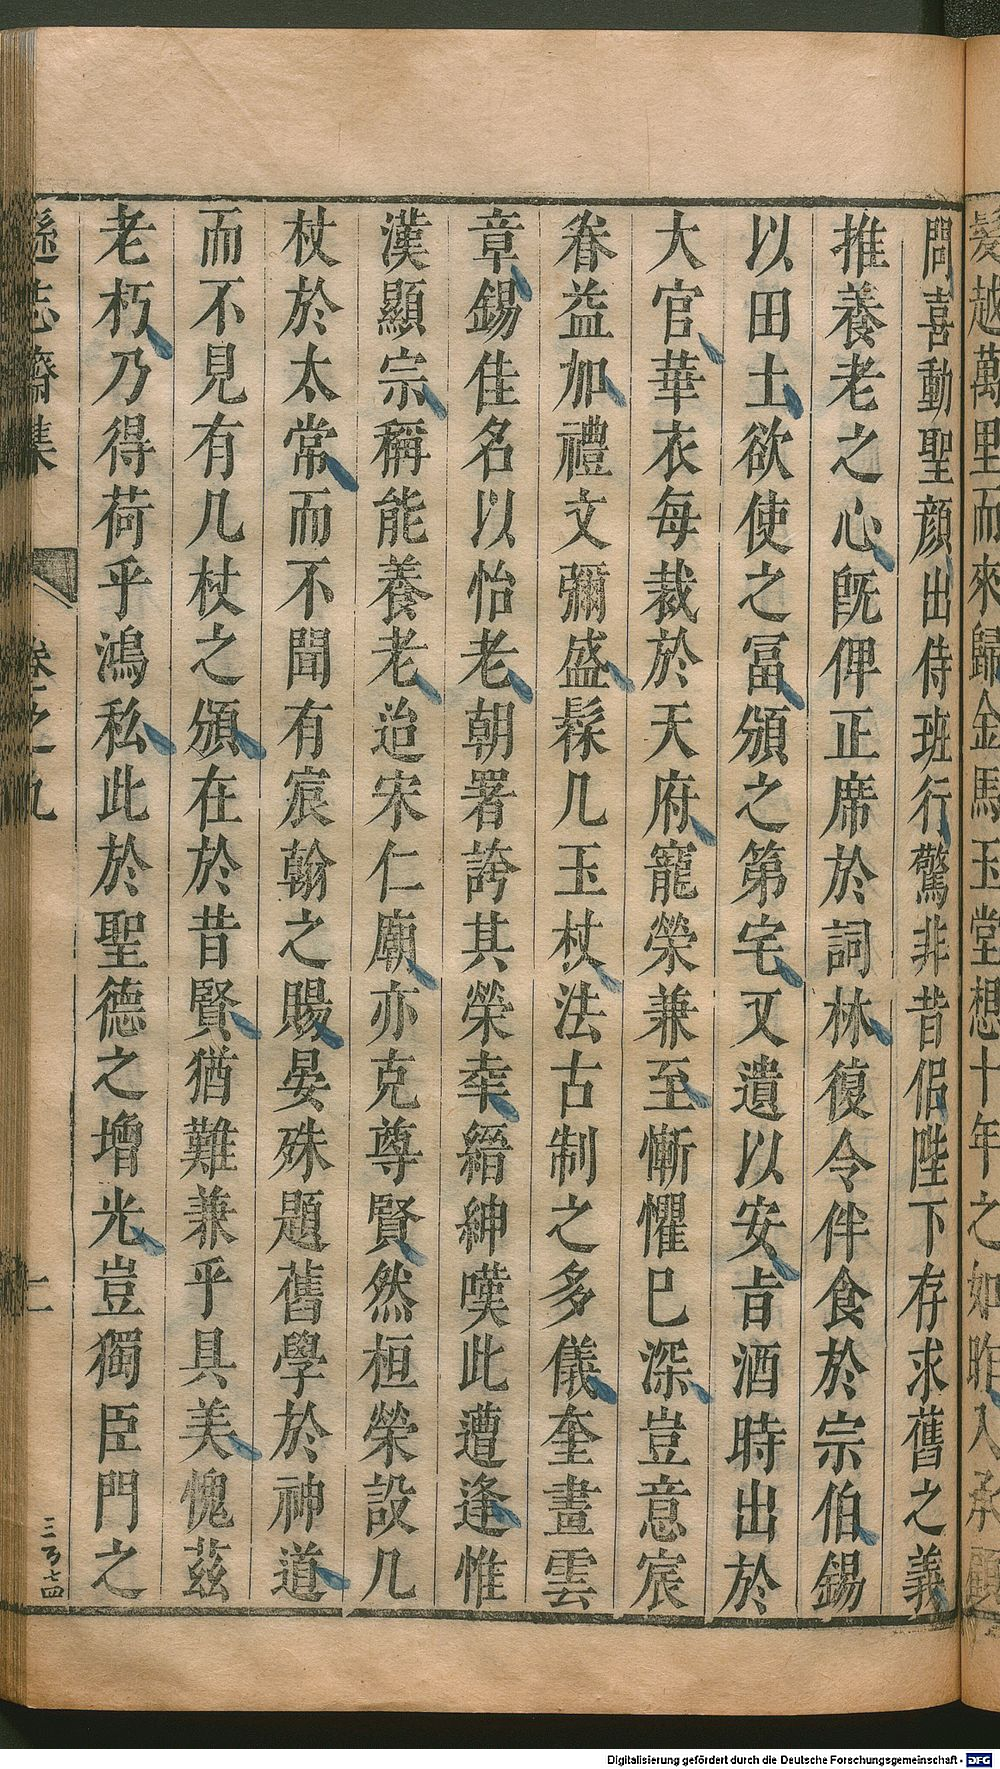 髮越萬里而來歸金馬玉堂想十年之如昨入承顧
問喜動聖顔出侍班行驚非昔侶陛下存求舊之義
推養老之心旣俾正席於詞林復令伴食於宗伯錫
以田土欲使之冨頒之第宅又遺以安㫖酒時出於
大官華衣每裁於天府寵榮兼至慚懼已深豈意宸
眷益加禮文彌盛髹几玉杖法古制之多儀奎畫雲
章錫佳名以怡老朝署誇其榮幸縉紳嘆此遭逢惟
漢顯宗稱能養老迨宋仁廟亦克尊賢然桓榮設几
杖於太常而不聞有宸翰之賜晏殊題舊學於神道
而不見有几杖之頒在於昔賢猶難兼乎具美愧茲
老朽乃得荷乎鴻私此於聖德之增光豈獨臣門之
遜志齋集 卷之九 二
三百七十四
Digitalisierung gefördert durch die Deutsche Forschungsgemeinschaft - DFG